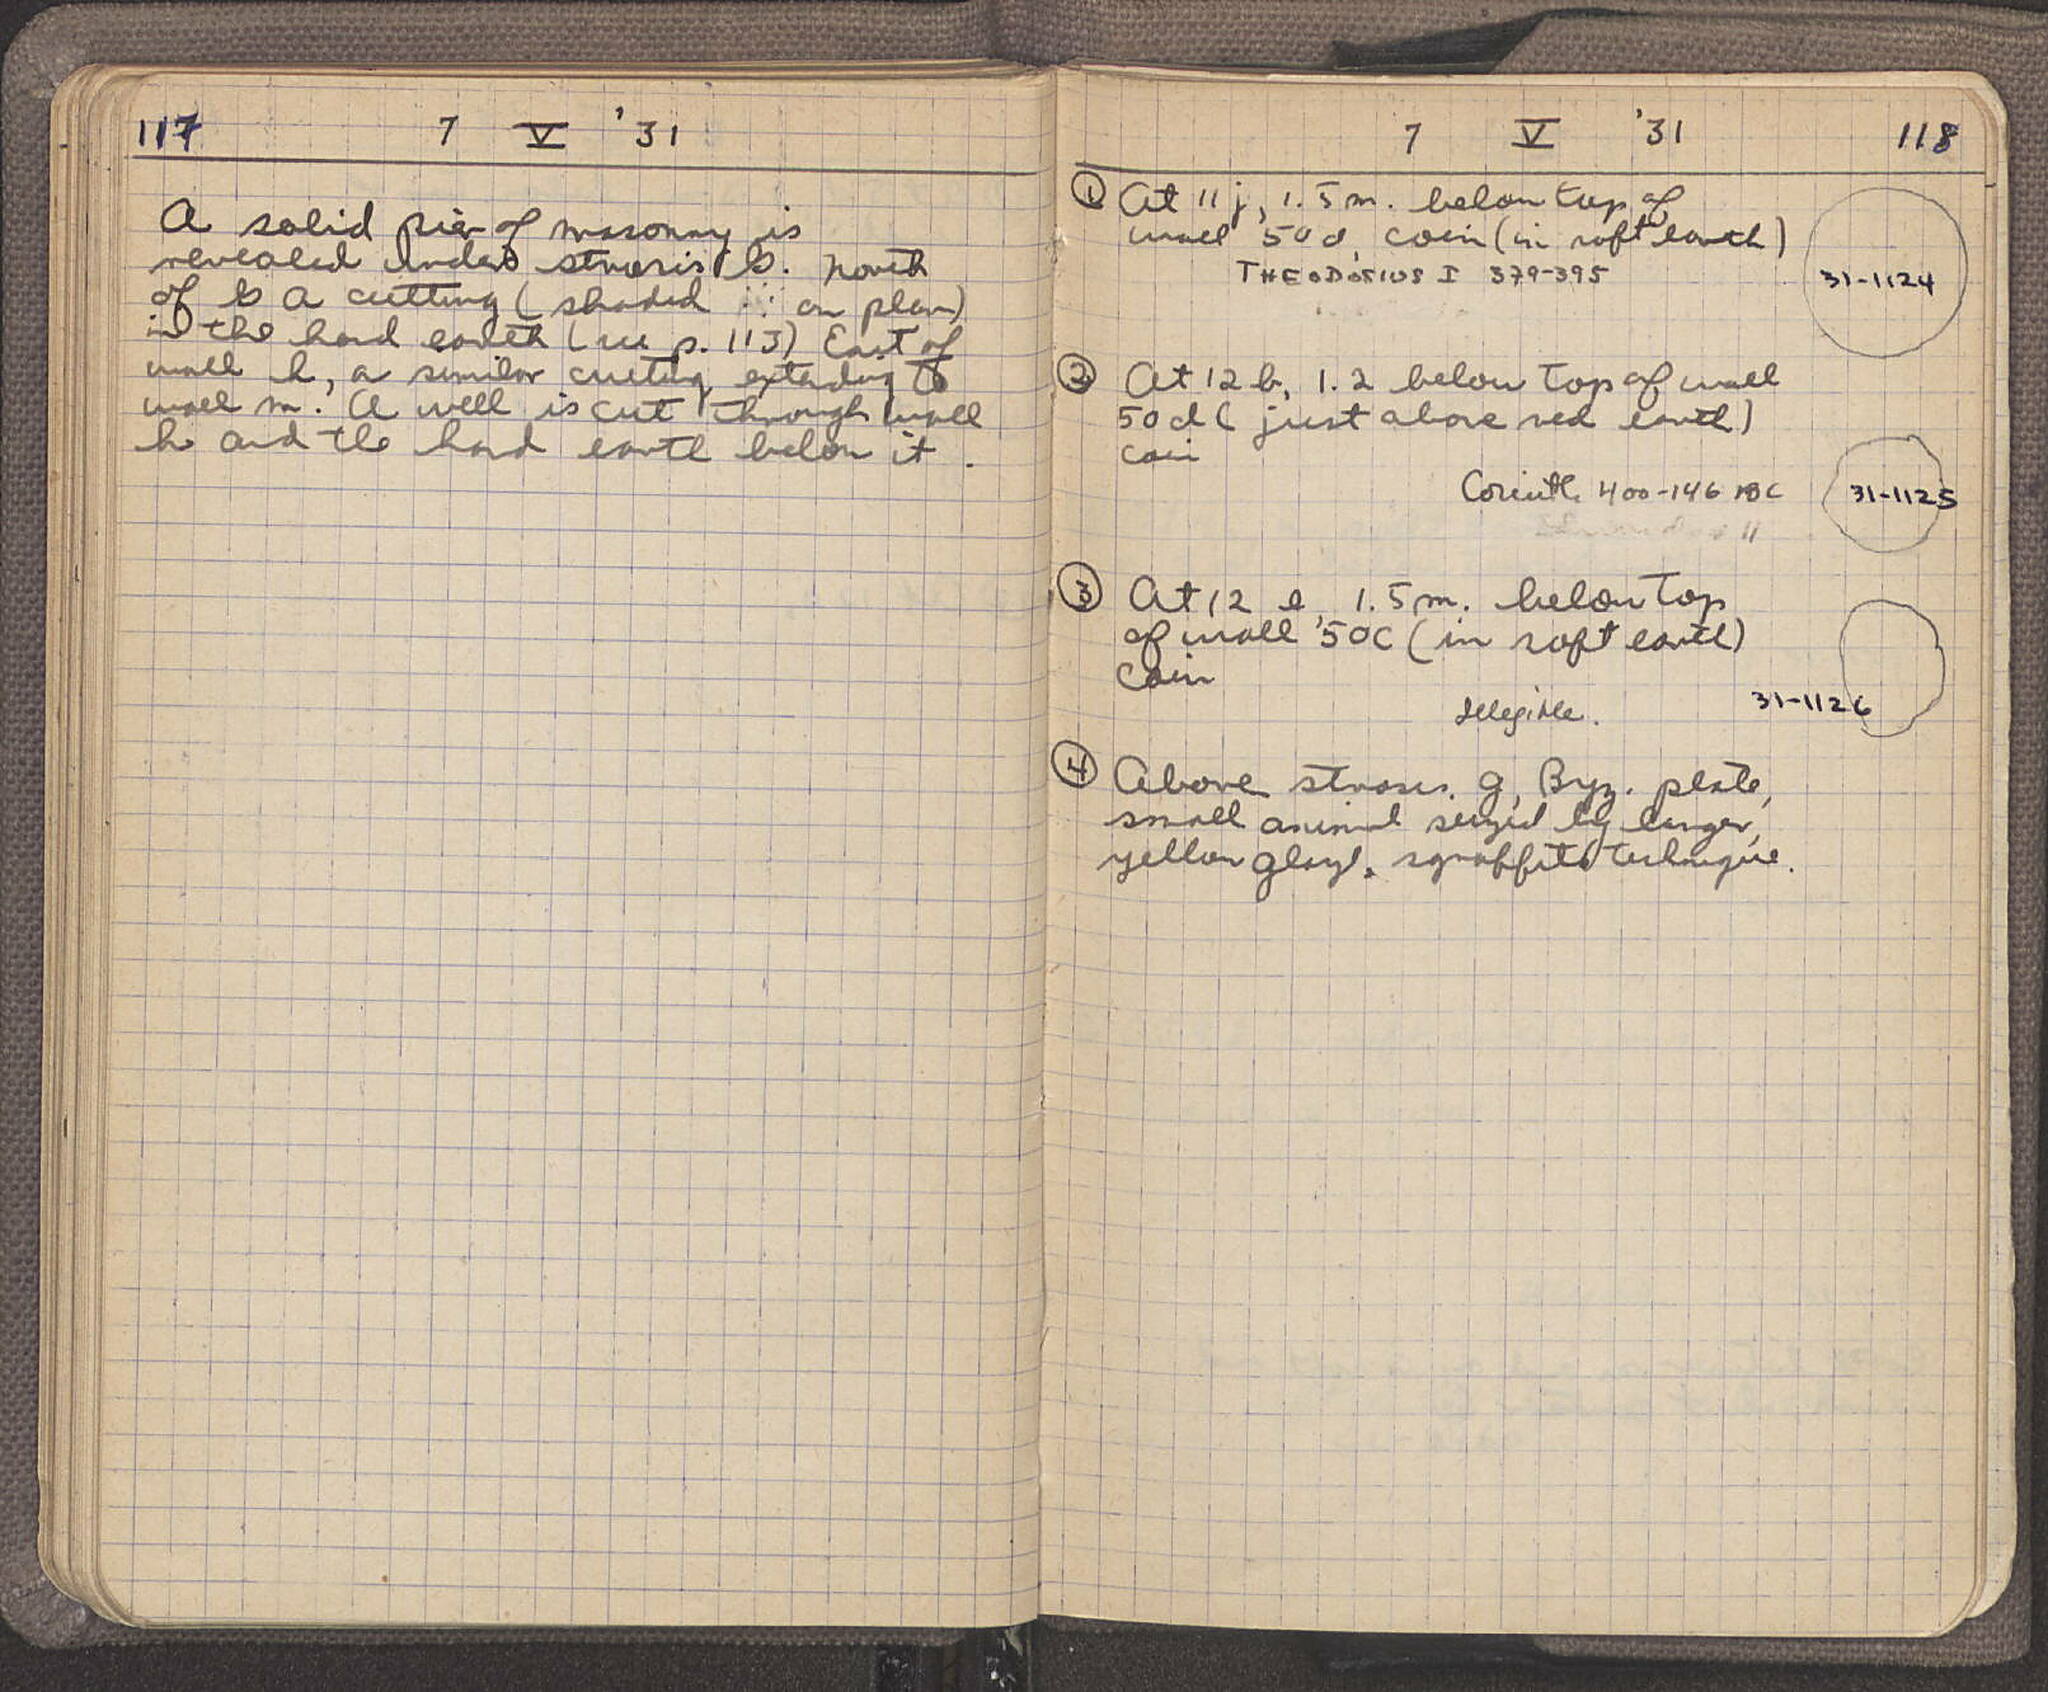 117 7 V '31
A solid pier of masonry is
revealed under stroses b. North
of b a cutting (shaded ∴ on plan)
in the hard earth (see p. 113) East of
wall h, a similar cutting extending to
wall m. A well is cut through wall
h and the hard earth below it.
7 V '31 118
① At 11 j, 1.5 m. below top of
wall 50d, coin (in soft earth)
THEODOSIUS I 379-395
31-1124
② At 12 b, 1.2 below top of wall
50d (just above red earth)
coin
Corinth 400-146 BC
31-1125
③ At 12 e, 1.5 m. below top
of wall 50c (in soft earth)
Coin
Illegible.
31-1126
④ Above stroses. g, Byz. plate,
small animal seized by larger,
yellow glaze, sgraffito technique.